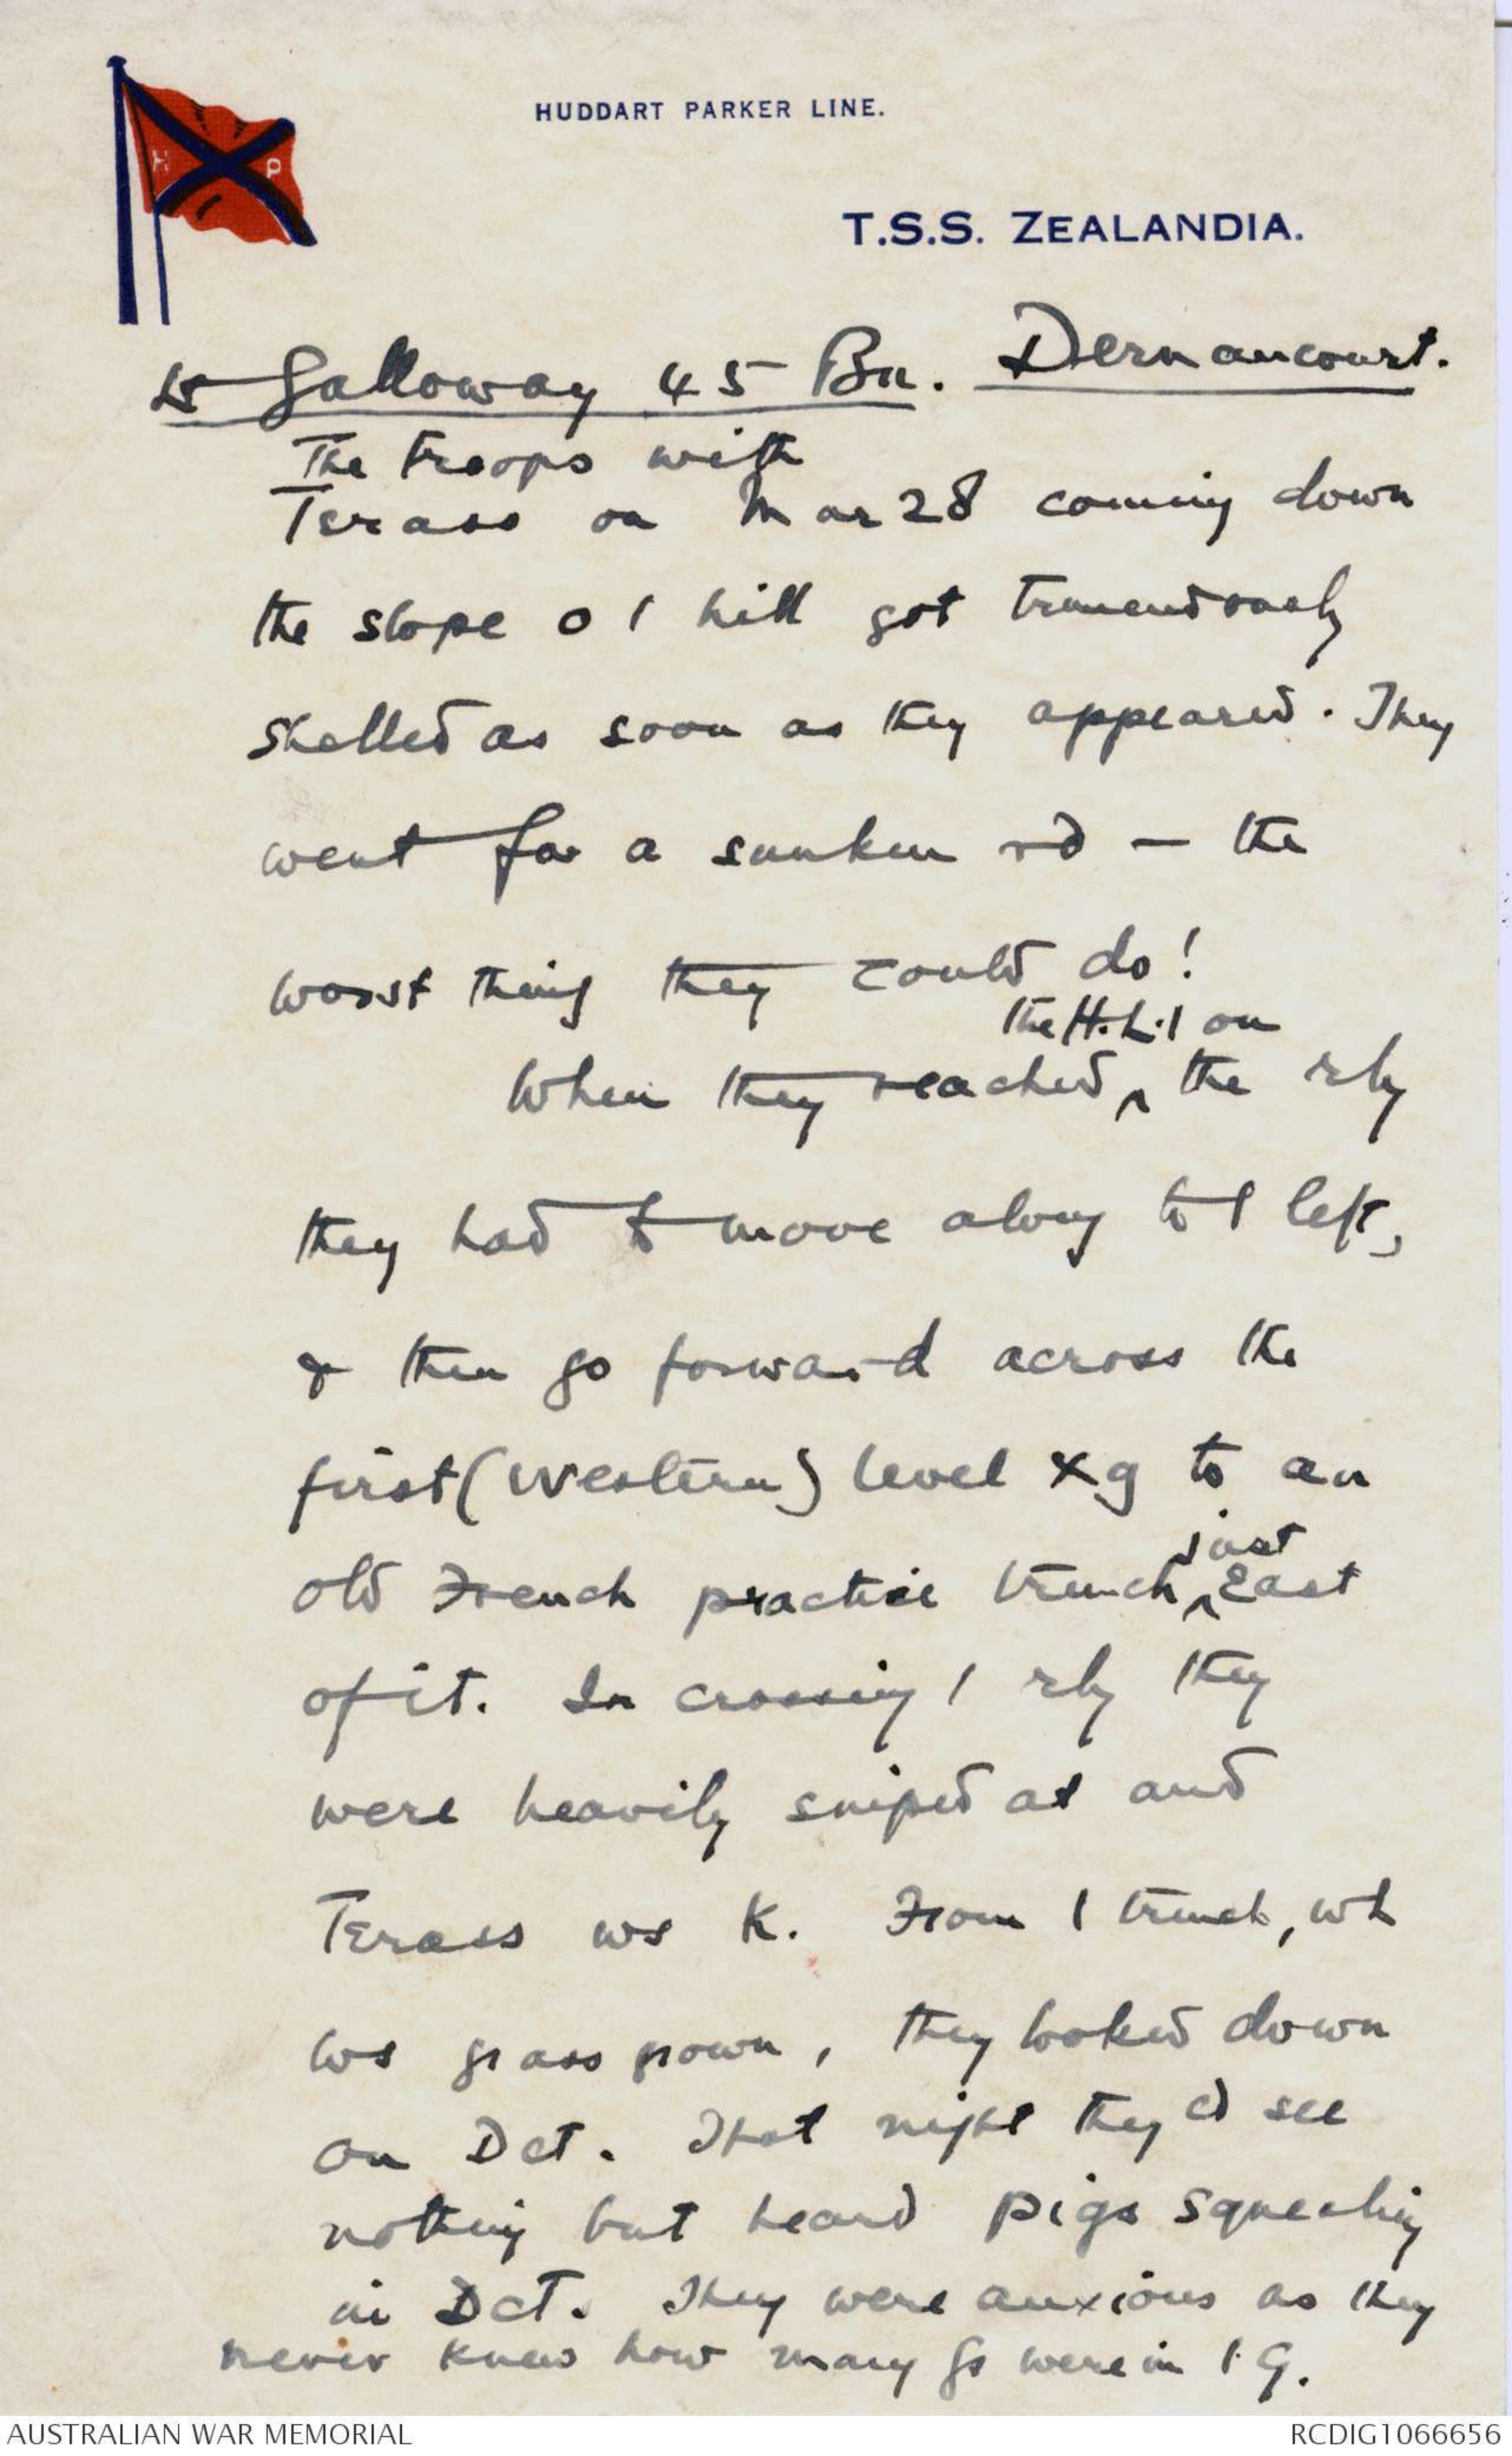 HUDDART PARKER LINE.
H P
T.S.S. ZEALANDIA.
Lt Galloway 45 Bn. Dernancourt.
The troops with
Terass on Mar 28 coming down
the slope o / hill got tremendously
shelled as soon as they appeared. They
went for a sunken rd — the
worst thing they could do!
the H.L.I on
When they reached ^ the rly
they had to move along to / left,
& then go forward across the
first (Western) level xg to an
just
old French practice trench ^ East
of it. In crossing / rly they
were heavily sniped at and
Terass ws K. From / trench, wh
ws grass grown, they looked down
on Dct. That night they cd see
nothing but heard pigs squealing
in Dct. They were anxious as they
never knew how many Gs were in / G.
AUSTRALIAN WAR MEMORIAL
RCDIG1066656